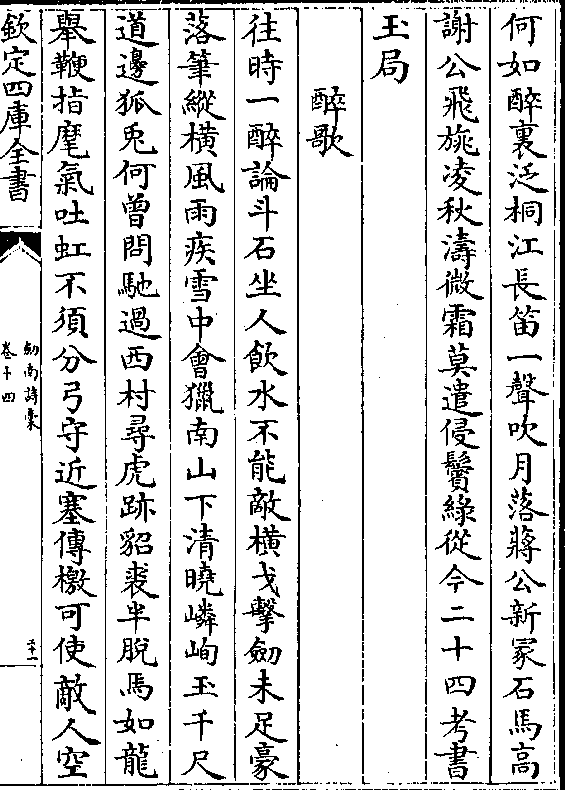 何如醉裏泛桐江長笛一聲吹月落蔣公新冢石馬高
謝公飛旐凌秋濤微霜莫遣侵鬢綠從今二十四考書
玉局
醉歌
往時一醉論斗石坐人飲水不能敵橫戈擊劒未足豪
落筆縱橫風雨疾雪中會獵南山下清曉嶙峋玉千尺
道邊狐兎何曾問馳過西村尋虎跡貂裘半脫馬如龍
舉鞭指麾氣吐虹不須分弓守近塞傳檄可使敵人空
欽定四庫全書
劒南詩稾
卷十四